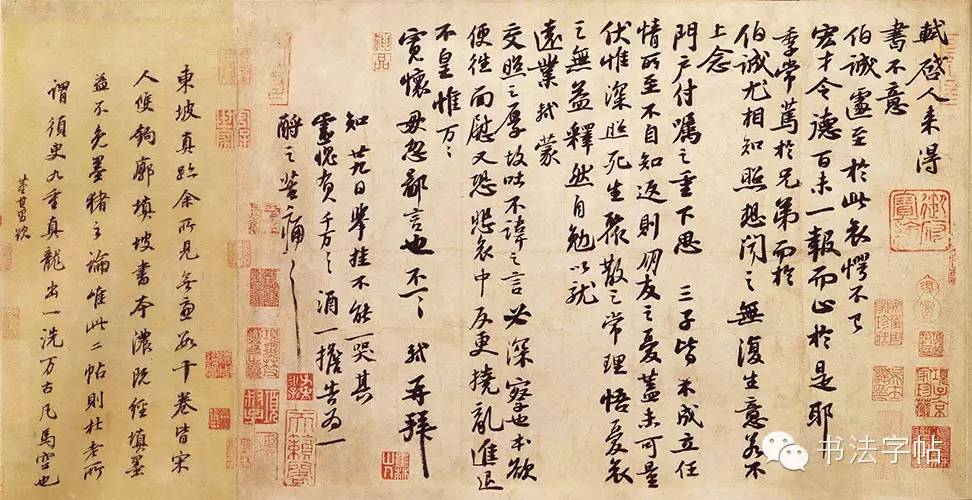 軾啓人来得
書不意
伯誠遽至於此哀愕不已
宏才令德百未一報而止於是耶
季常篤於兄弟而於
伯誠尤相知照想聞之無復生意若不
上念
門户付囑之重下思三子皆未成立任
情所至不自知返則朋友之憂蓋未可量
伏惟深照死生聚散之常理悟憂哀
之無益釋然自勉以就
遠業軾蒙
交照之厚故吐不諱之言必深察也本欲
便往面慰又恐悲哀中反更撓亂進退
不皇惟万万
寛懷毋忽鄙言也不一一軾再拜
知廿九日舉挂不能一哭其
靈愧負千万千万酒一擔告為一
酹之苦痛苦痛
東坡真跡余所見無慮數十卷皆宋
人雙鉤廓填坡書本濃既經填墨
益不免墨猪之論惟此二帖則杜老所
謂須臾九重真龍出一洗万古凡馬空也
董其昌題
神品
天籟閣
項子京家珍藏
书法字帖